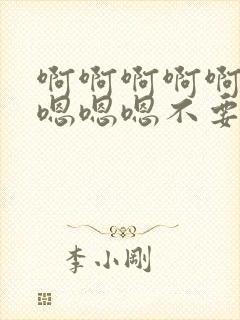 啊啊啊啊啊
嗯嗯嗯不要
李小刚